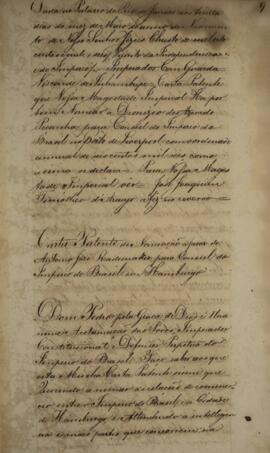 Dada no Palacio do Rio de Janeiro aos trinta
dias do mez de Maio do anno do Nascimento
de Nosso Senhor Jezus Christo de mil oito
centos e vinte e seis, Quinto da Independencia
e do Imperio = Imperador Com Guarda
Visconde de Inhambupe = Carta Patente
que Vossa Magestade Imperial Ha por
bem Nomear a Dionizio de Azevedo
Peçanha, para Consul do Imperio do
Brasil no Porto de Liverpool com o ordenado
annual de seis centos mil reis como
acima se declara = Para Vossa Magestade
Imperial ver = José Joaquim
Timotheo de Araujo a fez
Carta Patente de Nomeação a favor de
Antonio José Rademaker, para Consul do
Imperio do Brasil em Hamburgo
Dom Pedro pela Graça de Deos e Unanime
Acclamação dos Povos, Imperador
Constitucional e Defensor Perpetuo do
Imperio do Brasil. Faço saber aos que
esta Minha Carta Patente virem que
Querendo animar as relações de commercio
entre o Imperio do Brasil e a Cidade
de Hamburgo e Attendendo a intelligencia
e mais partes que concorrem na